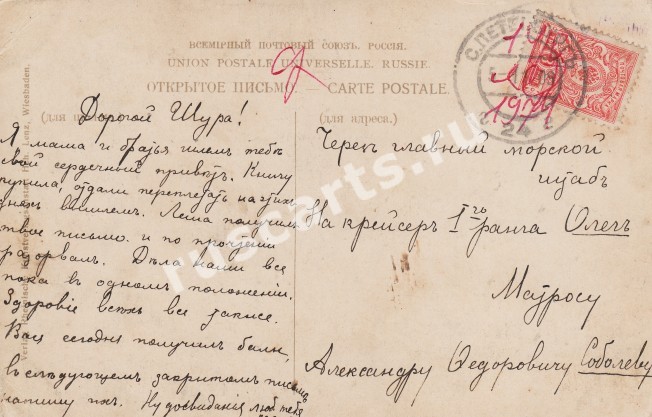 ВСЕМІРНЫЙ ПОЧТОВЫЙ СОЮЗЪ. РОССІЯ.
UNION POSTALE UNIVERSELLE. RUSSIE.
ОТКРЫТОЕ ПИСЬМО. — CARTE POSTALE.
(для
(для адреса.)
Дорогой Шура!
Я мама и братья шлемъ тебѣ
свой сердечный привѣтъ. Книгу
отдали переплетать на этихъ
дняхъ вышлемъ. Леша получилъ
твое письмо и по прочтеніи
разорвалъ. Дѣла наши все
пока въ одномъ положеніи.
Здоровіе всѣхъ все такъже.
Вася сегодня получилъ балы,
въ слѣдующемъ закрытомъ письмѣ
напишу ихъ. Ну досвиданія люб. тебя
Черезъ главный морской
штабъ
На крейсеръ Iго ранга Олегъ
Матросу
Александру Ѳедоровичу Соболеву
С.ПЕТЕРБУРГЪ
24
1911
Wiesbaden.
ruscarts.ru